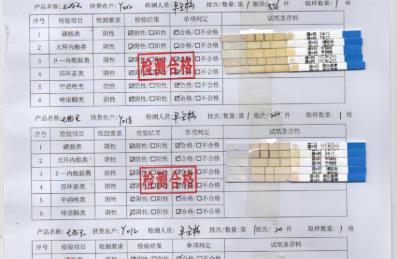 产品名称: 供货农户: Y002 检测人员: 批次/数量: 第1批次/336 取样数量: 1 枚
序号 检验项目 检测要求 检验结果 单项判定 试纸条存档
1 磺胺类 阴性 ☑阴性/☐阳性 ☑合格/☐不合格
2 大环内酯类 阴性 ☑阴性/☐阳性 ☑合格/☐不合格
3 β-一内酰胺类 阴性 ☑阴性/☐阳性 ☑合格/☐不合格
4 四环素类 阴性 ☑阴性/☐阳性 ☑合格/☐不合格
5 甲硝唑类 阴性 ☑阴性/☐阳性 ☑合格/☐不合格
6 喹诺酮类 阴性 ☑阴性/☐阳性 ☑合格/☐不合格
检测合格
产品名称: 供货农户: Y018 检测人员: 批次/数量: 第1批次/200 取样数量: 1 枚
序号 检验项目 检测要求 检验结果 单项判定 试纸条存档
1 磺胺类 阴性 ☑阴性/☐阳性 ☑合格/☐不合格
2 大环内酯类 阴性 ☑阴性/☐阳性 ☑合格/☐不合格
3 β-一内酰胺类 阴性 ☑阴性/☐阳性 ☑合格/☐不合格
4 四环素类 阴性 ☑阴性/☐阳性 ☑合格/☐不合格
5 甲硝唑类 阴性 ☑阴性/☐阳性 ☑合格/☐不合格
6 喹诺酮类 阴性 ☑阴性/☐阳性 ☑合格/☐不合格
检测合格
产品名称: 供货农户: Y012 检测人员: 批次/数量: 第1批次/20 取样数量: 1 枚
序号 检验项目 检测要求 检验结果 单项判定 试纸条存档